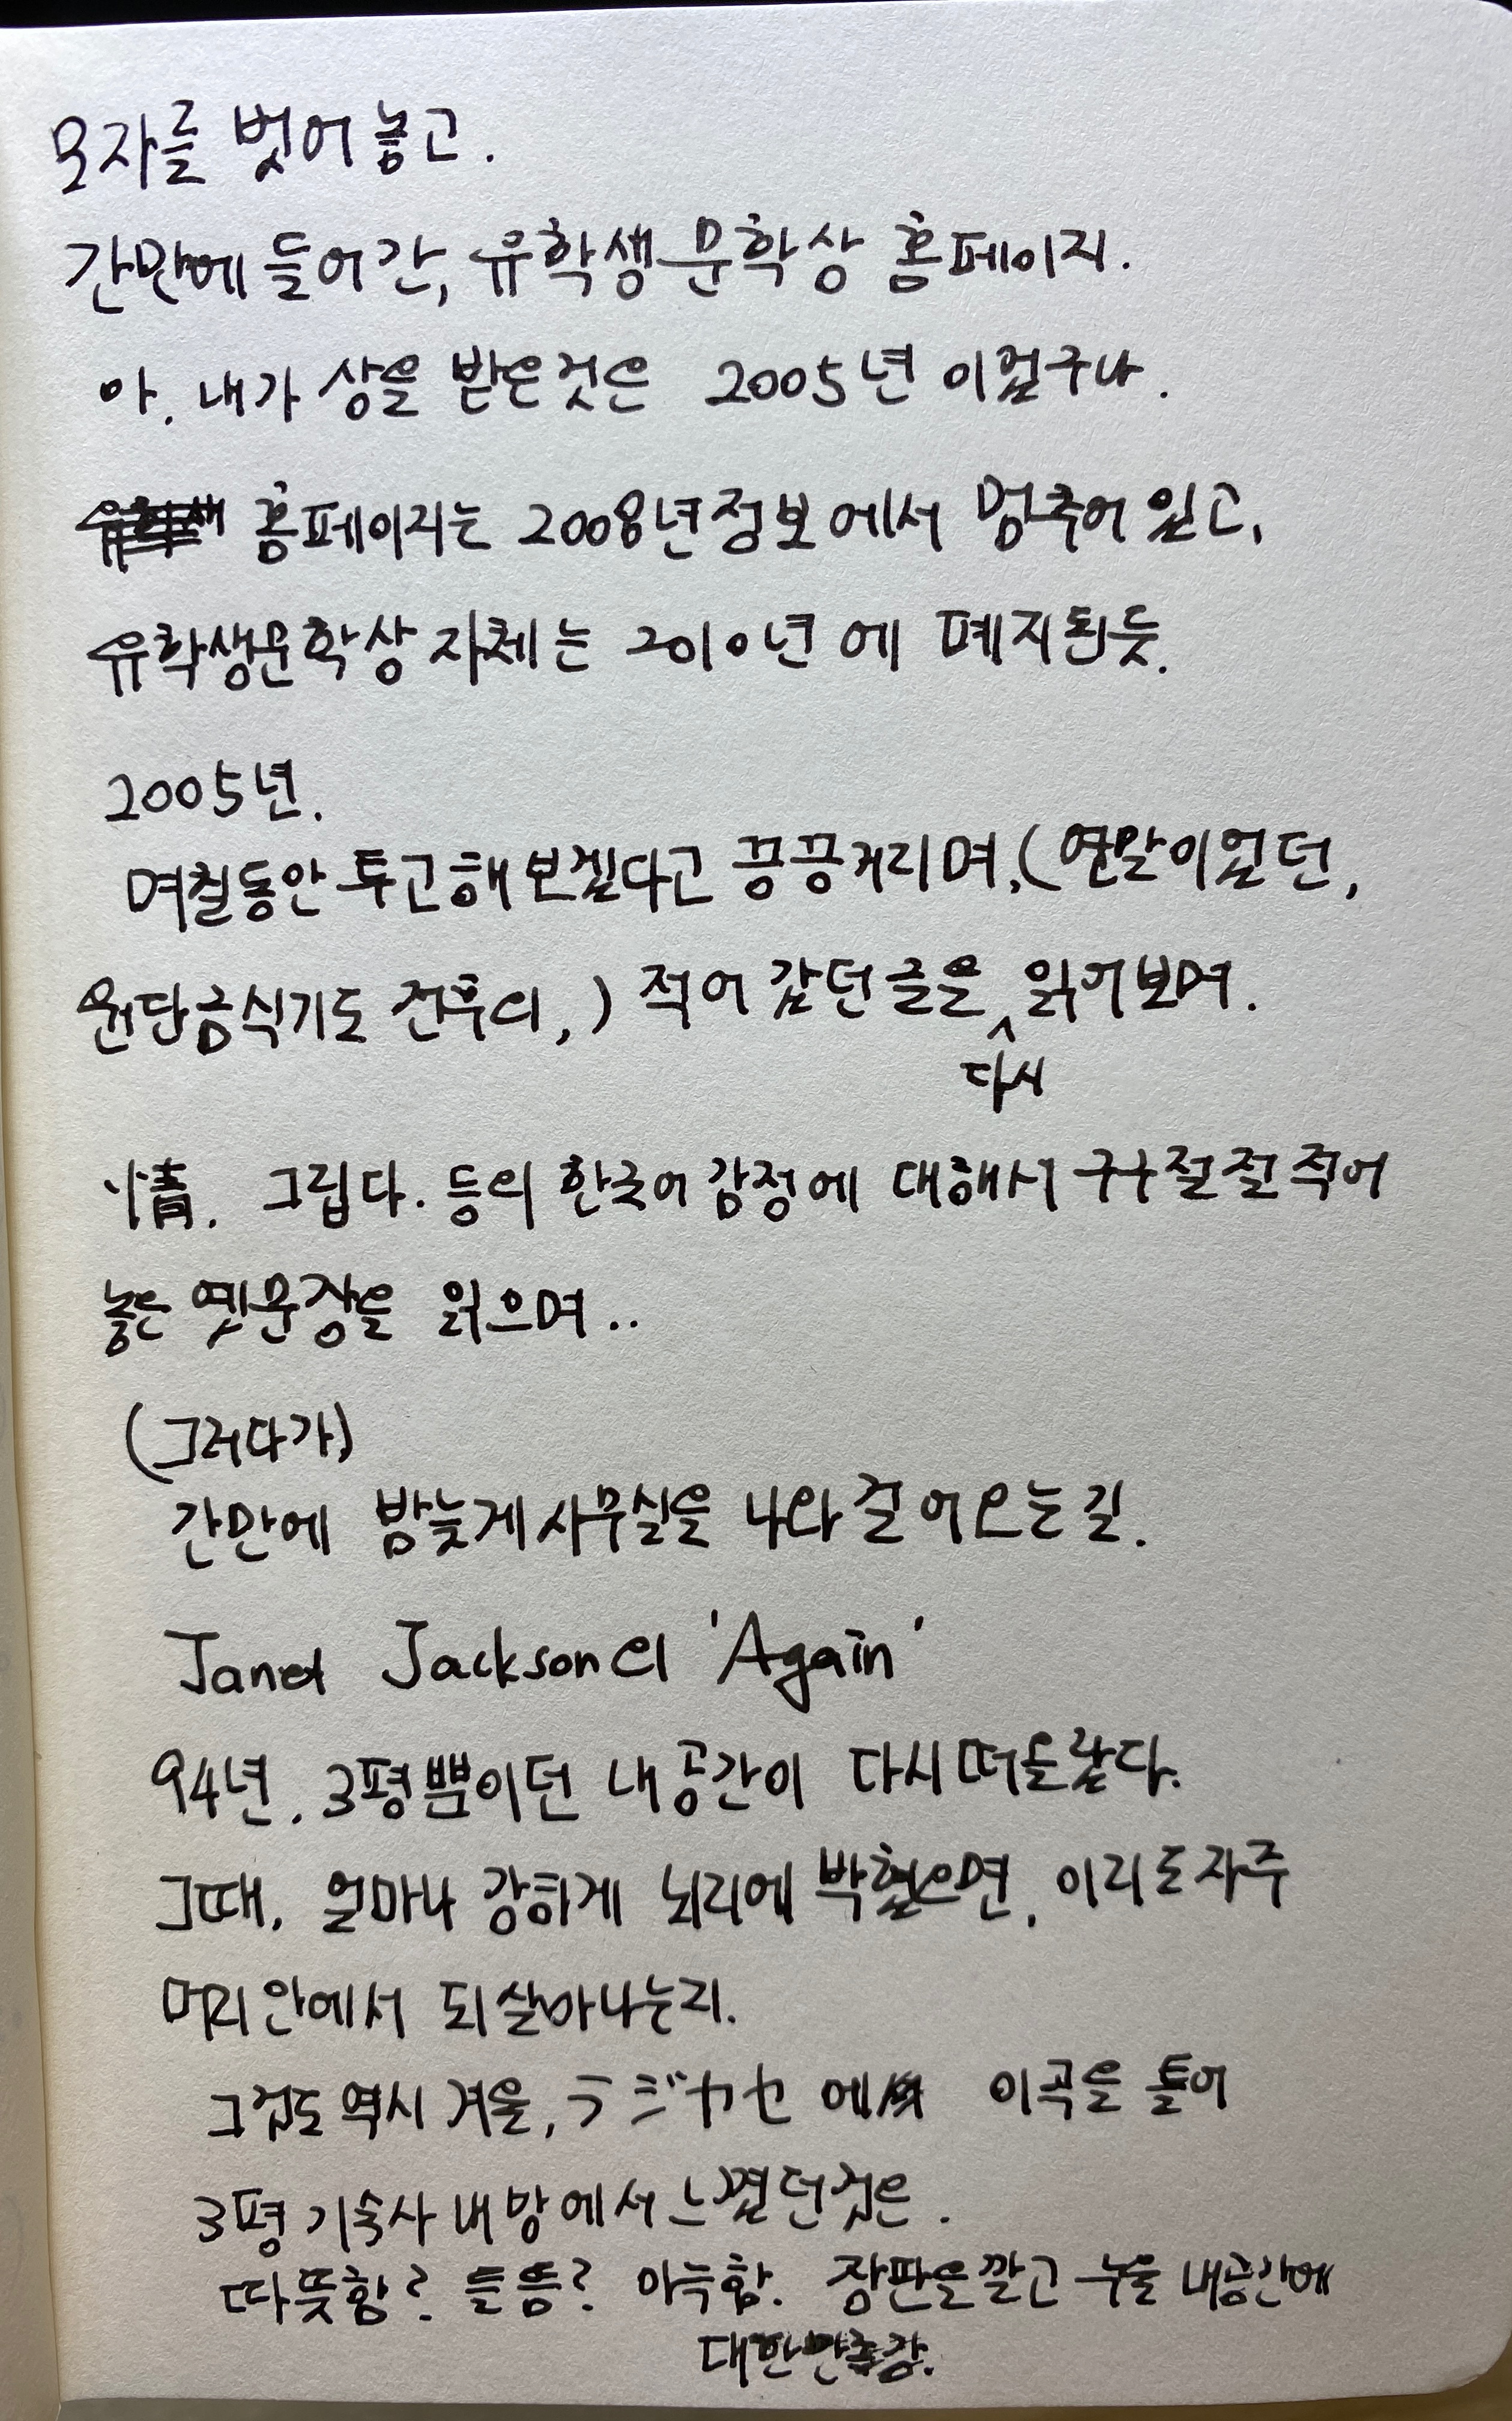 모자를 벗어놓고.
간만에 들어간, 유학생문학상 홈페이지.
아. 내가 상을 받은것은 2005년 이었구나.
홈페이지는 2008년정보에서 멈추어 있고,
유학생문학상 자체는 2010년에 폐지된듯.
2005년.
며칠동안 투고해보겠다고 끙끙거리며,(연말이었던,
원단금식기도 전후의,) 적어 갔던 글을 읽어보며.
다시
情. 그립다. 등의 한국어 감정에 대해서 구구절절 적어
놓은 옛문장을 읽으며..
(그러다가)
간만에 밤늦게 사무실을 나와 걸어오는 길.
Janet Jackson의 'Again'
94년. 3평쁨이던 내 공간이 다시 떠올랐다.
그때. 얼마나 강하게 뇌리에 박혔으면, 이리도 자주
머리 안에서 되살아나는지.
그것도 역시 겨울, ラジカセ 에 이곡을 틀어
3평 기숙사 내 방에서 느꼈던것은.
따뜻함? 들뜸? 아늑함. 장판을 깔고 누울 내공간에
대한만족감.